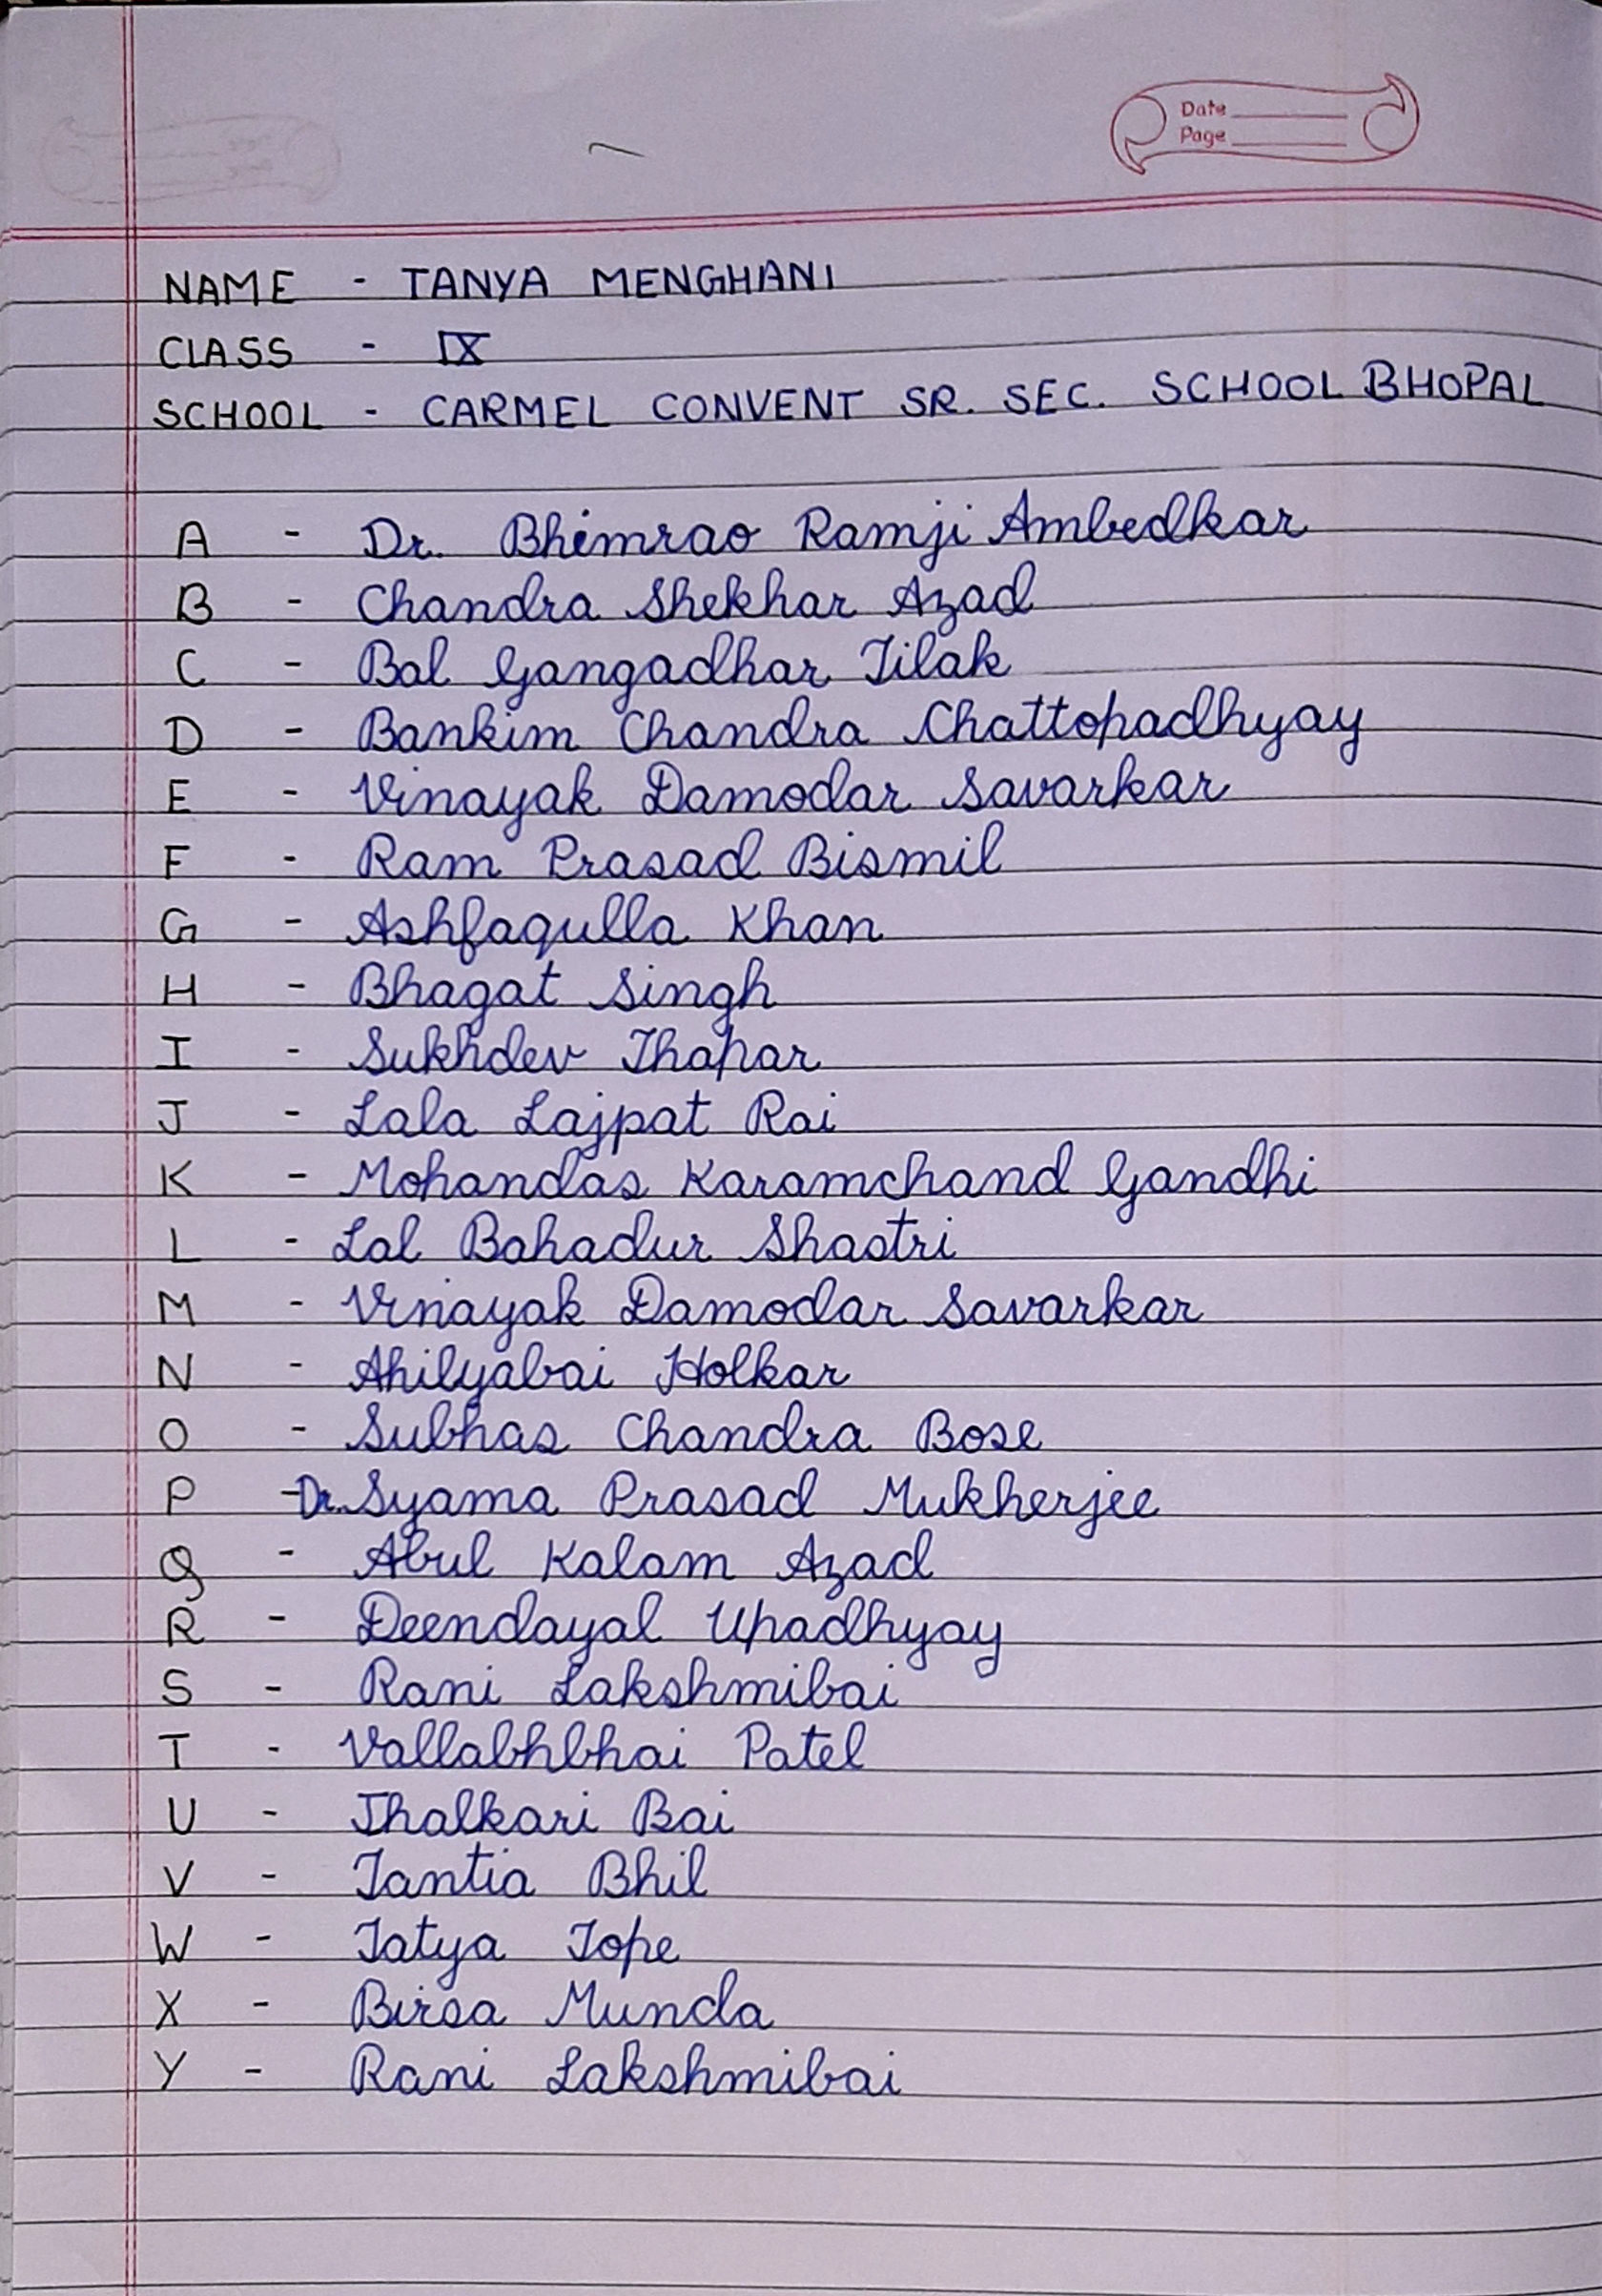 Date
Page
NAME - TANYA MENGHANI
CLASS - IX
SCHOOL - CARMEL CONVENT SR. SEC. SCHOOL BHOPAL
A - Dr. Bhimrao Ramji Ambedkar
B - Chandra Shekhar Azad
C - Bal Gangadhar Tilak
D - Bankim Chandra Chattopadhyay
E - Vinayak Damodar Savarkar
F - Ram Prasad Bismil
G - Ashfaqulla Khan
H - Bhagat Singh
I - Sukhdev Thapar
J - Lala Lajpat Rai
K - Mohandas Karamchand Gandhi
L - Lal Bahadur Shastri
M - Vinayak Damodar Savarkar
N - Ahilyabai Holkar
O - Subhas Chandra Bose
P - Dr. Syama Prasad Mukherjee
Q - Abul Kalam Azad
R - Deendayal Upadhyay
S - Rani Lakshmibai
T - Vallabhbhai Patel
U - Jhalkari Bai
V - Tantia Bhil
W - Tatya Tope
X - Birsa Munda
Y - Rani Lakshmibai